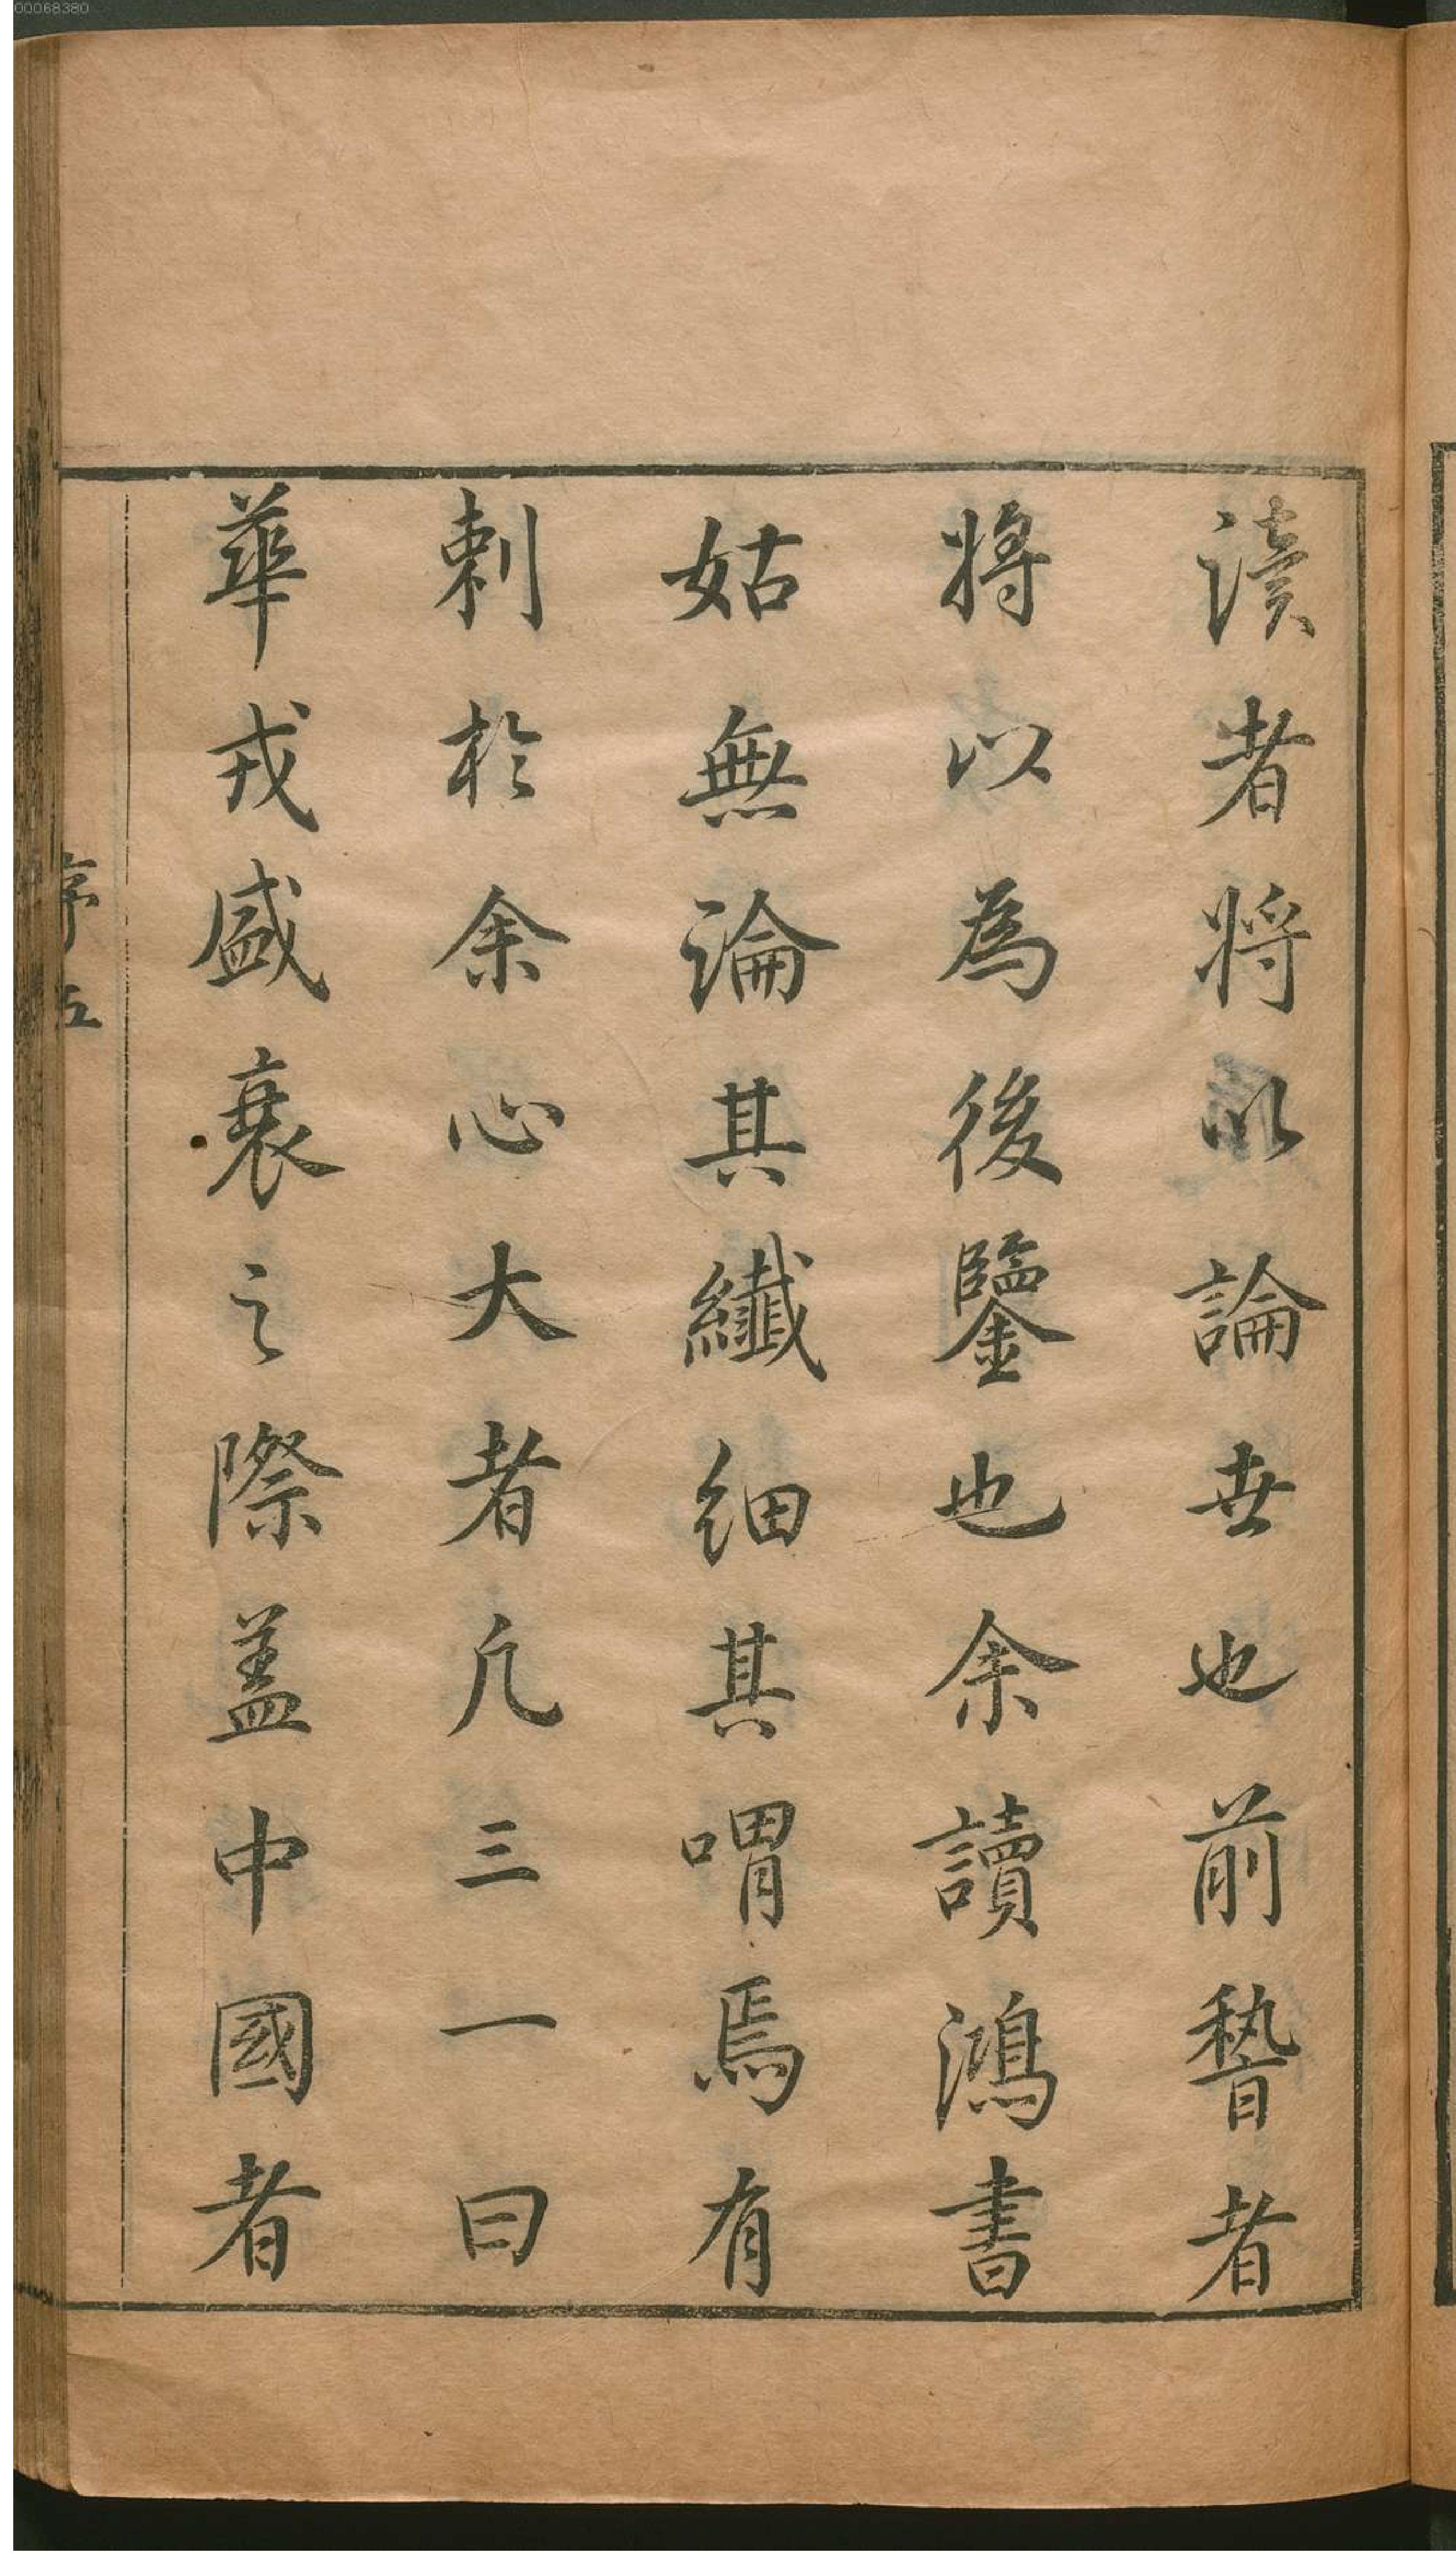 讀者將以論世也前謷者
將以為後鑒也余讀鴻書
姑無論其纖細其喟焉有
刺於余心大者凡三一曰
華戎盛衰之際蓋中國者
序五
00068380